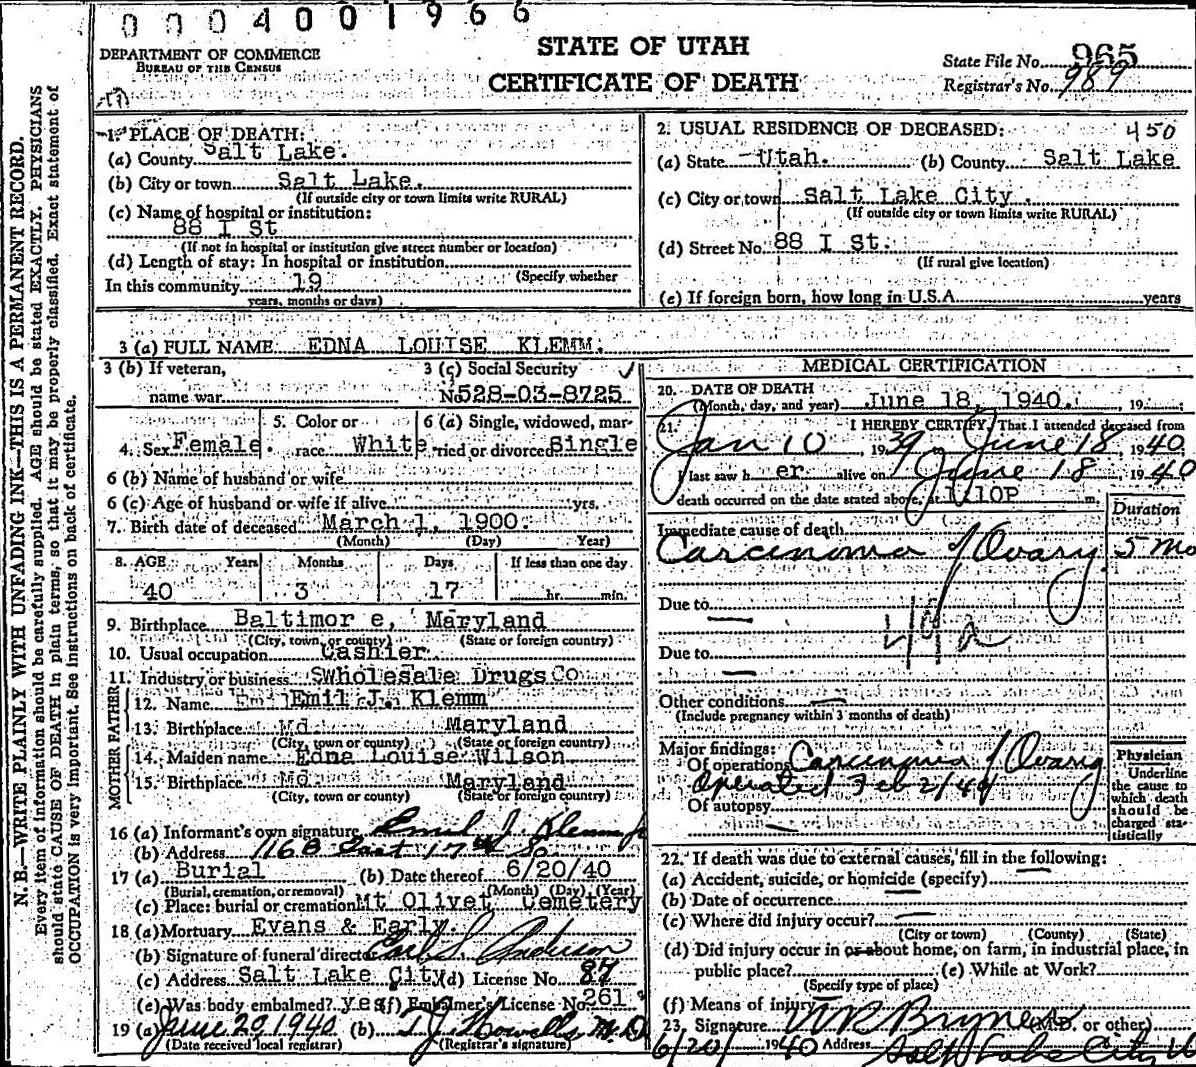 0004001966
DEPARTMENT OF COMMERCE
BUREAU OF THE CENSUS
STATE OF UTAH
CERTIFICATE OF DEATH
State File No. 965
Registrar's No. 989
N. B.—WRITE PLAINLY WITH UNFADING INK—THIS IS A PERMANENT RECORD.
Every item of information should be carefully supplied. AGE should be stated EXACTLY. PHYSICIANS
should state CAUSE OF DEATH in plain terms, so that it may be properly classified. Exact statement of
OCCUPATION is very important. See instructions on back of certificate.
1. PLACE OF DEATH:
(a) County Salt Lake.
(b) City or town Salt Lake.
(If outside city or town limits write RURAL)
(c) Name of hospital or institution:
88 I St
(If not in hospital or institution give street number or location)
(d) Length of stay: In hospital or institution
(Specify whether
In this community 19
years, months or days)
2. USUAL RESIDENCE OF DECEASED: 450
(a) State Utah. (b) County Salt Lake
(c) City or town Salt Lake City.
(If outside city or town limits write RURAL)
(d) Street No. 88 I St.
(If rural give location)
(e) If foreign born, how long in U.S.A. years
3 (a) FULL NAME EDNA LOUISE KLEMM.
3 (b) If veteran,
name war
3 (c) Social Security
No. 528-03-8725
4. Sex Female. 5. Color or race White 6 (a) Single, widowed, married or divorced Single
6 (b) Name of husband or wife
6 (c) Age of husband or wife if alive yrs.
7. Birth date of deceased March 1, 1900.
(Month) (Day) Year)
8. AGE Years Months Days If less than one day
40 3 17 hr. min.
9. Birthplace Baltimor e, Maryland
(City, town, or county) (State or foreign country)
10. Usual occupation Cashier
11. Industry or business SWholesale Drugs Co
FATHER
12. Name Emil J. Klemm
13. Birthplace Md. Maryland
(City, town or county) (State or foreign country)
MOTHER
14. Maiden name Edna Louise Wilson
15. Birthplace Md. Maryland
(City, town or county) (State or foreign country)
16 (a) Informant's own signature Emil J. Klemm Jr
(b) Address 1168 East 17th So.
17 (a) Burial (b) Date thereof 6/20/40
(Burial, cremation, or removal) (Month) (Day) (Year)
(c) Place: burial or cremation Mt Olivet Cemetery
18 (a) Mortuary Evans & Early.
(b) Signature of funeral director Earl S. Anderson
(c) Address Salt Lake City (d) License No. 87
(e) Was body embalmed? yes (f) Embalmer's License No. 261
19 (a) June 20 1940 (b) T. J. Howells M. D.
(Date received local registrar) (Registrar's signature)
MEDICAL CERTIFICATION
20. DATE OF DEATH
(Month, day, and year) June 18, 1940. 19
21. I HEREBY CERTIFY, That I attended deceased from
Jan 10 1939 June 18 1940
I last saw h er alive on June 18 1940
death occurred on the date stated above, at 1.10P m.
Duration
Immediate cause of death
Carcinoma of Ovary 5 mo
Due to
49a
Due to
Other conditions
(Include pregnancy within 3 months of death)
Major findings:
Of operations Carcinoma of Ovary
Operated Feb 2/40
Of autopsy
Physician
Underline
the cause to
which death
should be
charged sta-
tistically
22. If death was due to external causes, fill in the following:
(a) Accident, suicide, or homicide (specify)
(b) Date of occurrence
(c) Where did injury occur?
(City or town) (County) (State)
(d) Did injury occur in or about home, on farm, in industrial place, in
public place? (e) While at Work?
(Specify type of place)
(f) Means of injury
23. Signature (M.D. or other)
6/20/ 1940 Address Salt Lake City U